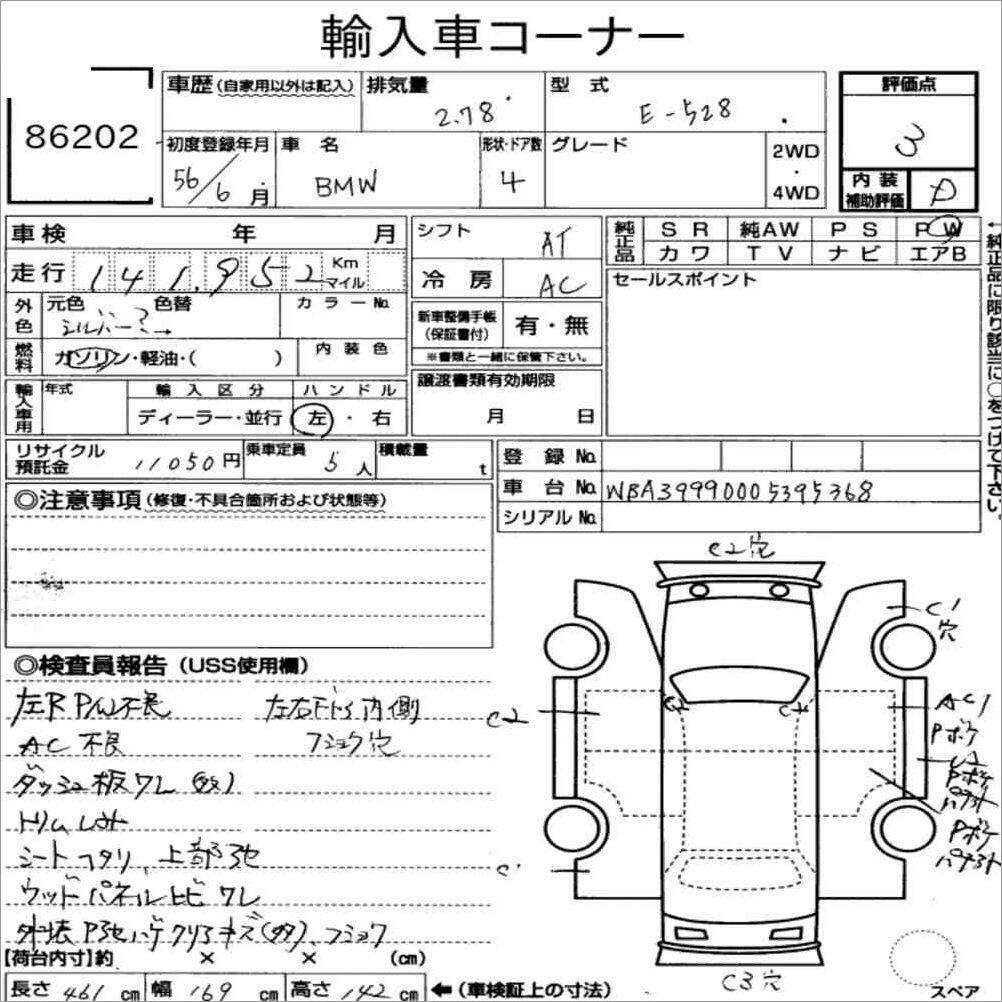 輸入車コーナー
86202
車歴(自家用以外は記入) 排気量 2.78 型式 E-528 評価点 3
初度登録年月 56/6月 車名 BMW 形状・ドア数 4 グレード 2WD・4WD 内装補助評価 D
車検 年 月 シフト AT 純正品 SR 純AW PS PW
カワ TV ナビ エアB
走行 141,952 Km マイル 冷房 AC セールスポイント
外色 元色 シルバーミ→ 色替 カラーNo. 新車整備手帳(保証書付) 有・無
※書類と一緒に保管下さい。
燃料 ガソリン・軽油・( ) 内装色
譲渡書類有効期限 月 日
輸入車用 年式 輸入区分 ハンドル
ディーラー・並行 左・右
←純正品に限り該当に○をつけて下さい。
リサイクル預託金 11050円 乗車定員 5人 積載量 t
登録No.
車台No. WBA39990005395368
シリアルNo.
◎注意事項(修復・不具合箇所および状態等)
◎検査員報告(USS使用欄)
左R P/W不良 左右Fドs内側
AC不良 フショク穴
ダッシュ板ワレ(数)
トリムしみ
シートヘタリ、上部
ウッドパネルヒビワレ
外装 ハゲクリアキズ(多)、フショク
【荷台内寸】約 × × (cm)
長さ 461 cm 幅 169 cm 高さ 142 cm ←(車検証上の寸法)
C2穴
C1
穴
C2
AC1
Pボケ
Pボケ
Pボケ
C3穴
スペア